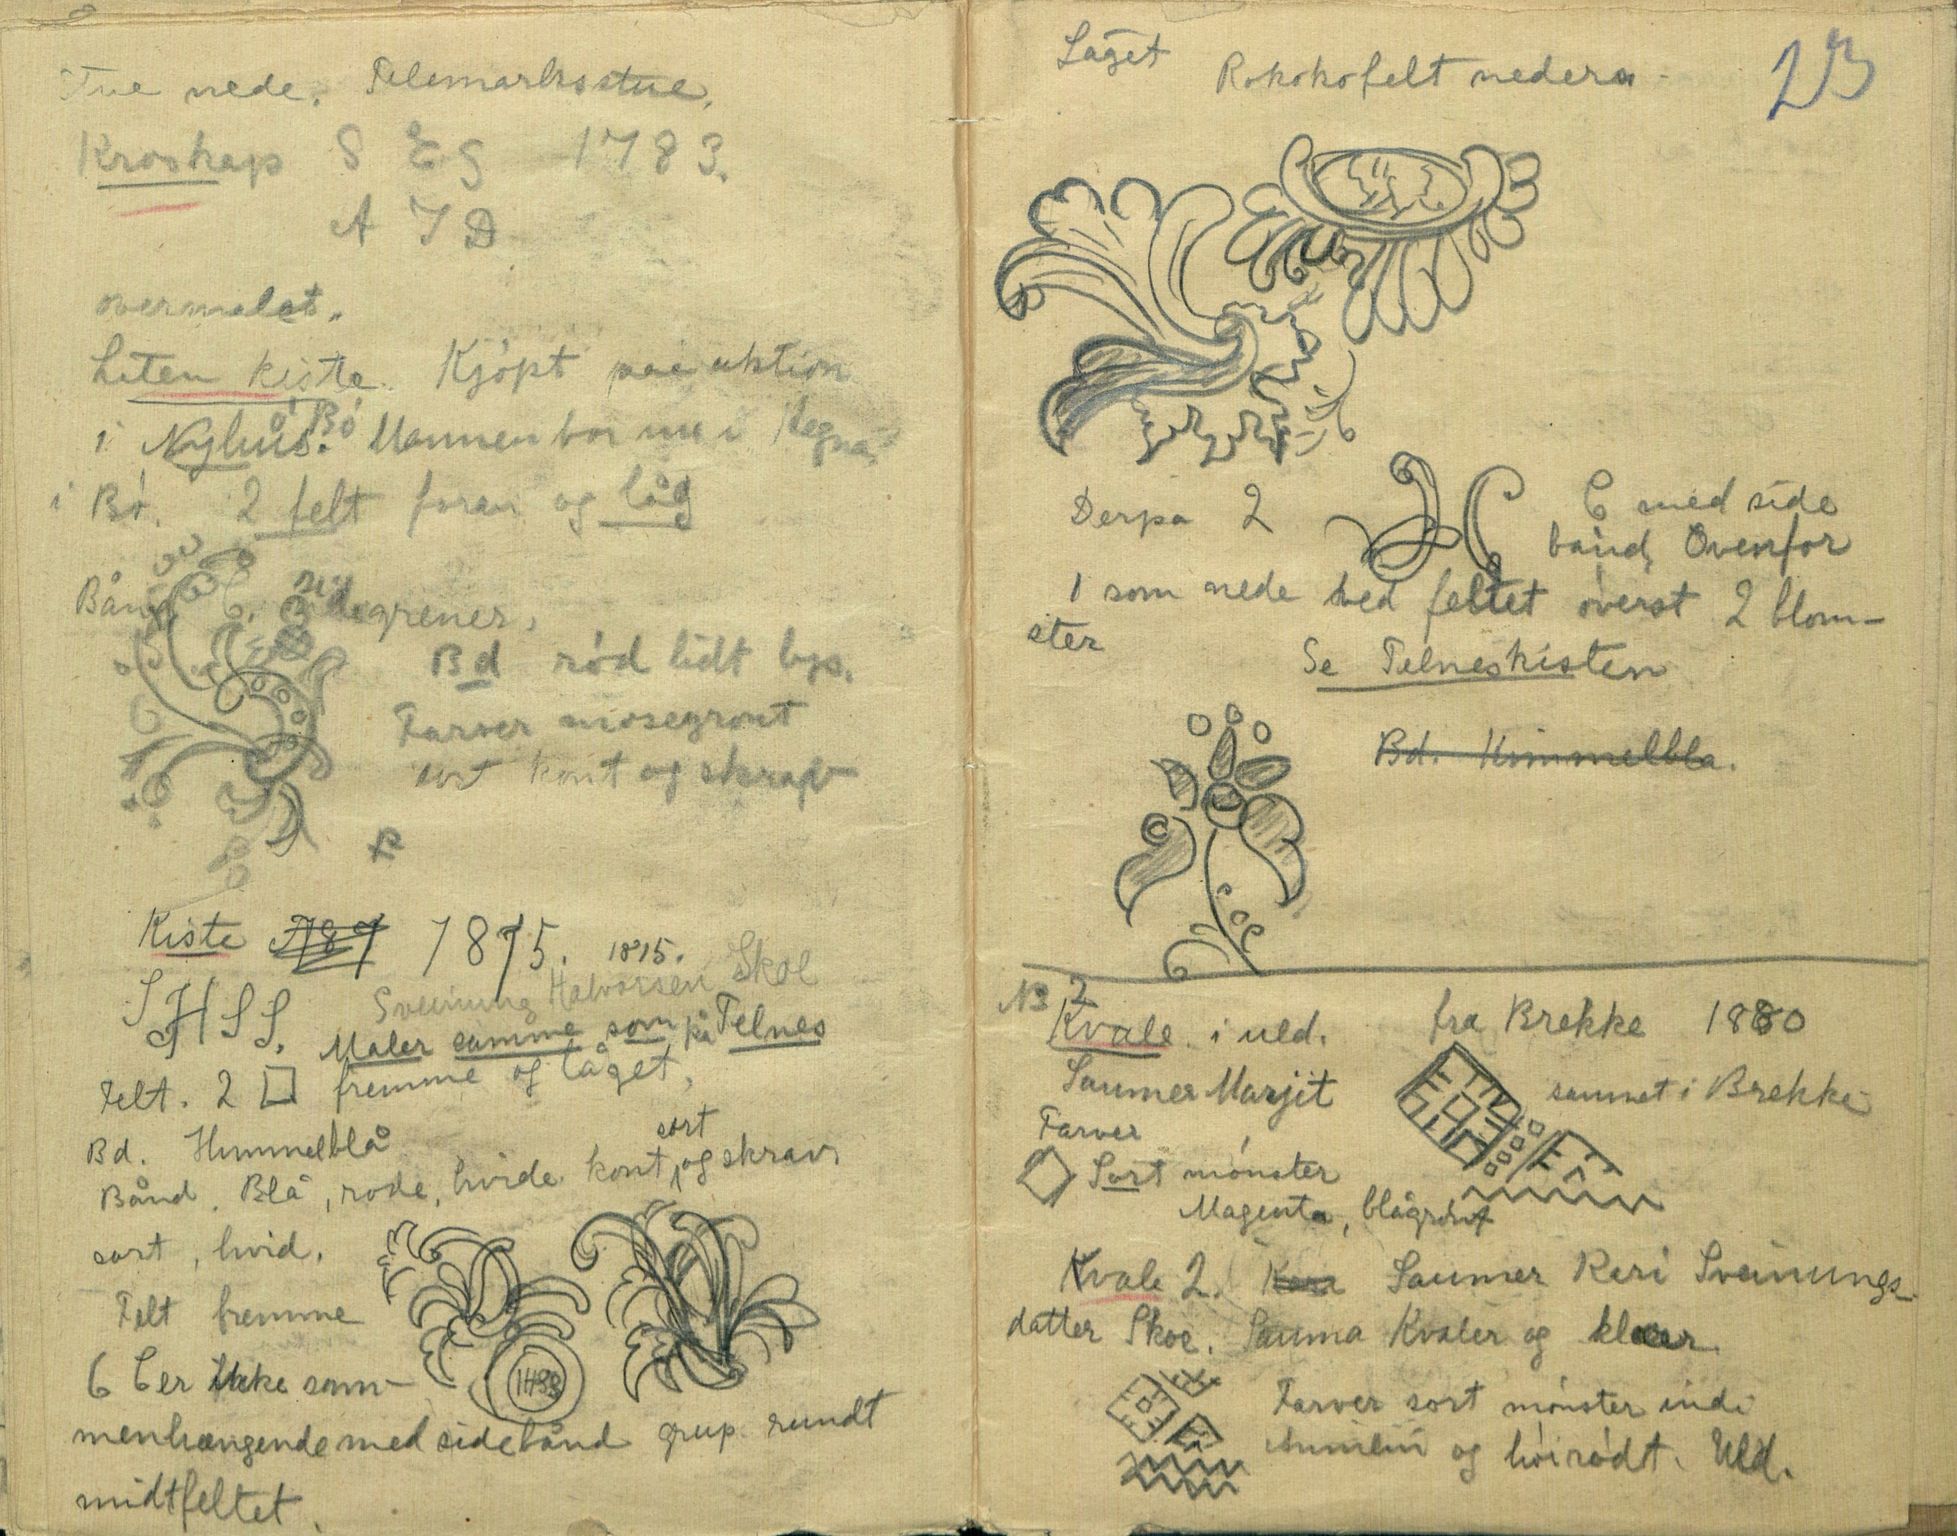 Tue nede. Telemarksstue.
Kroskap S E G 1783.
A I D
overmalet.
Liten kiste. Kjöpt på auktion
i Nyhus. Bö Mannen bor nu i
i Bö. 2 felt foran og låg
Bånd C. sidegrener.
Bd rød lidt lys.
Farver mosegrønt
sort kont og skrav
Kiste 1875. 1815.
S H S S. Sveinung Halvorsen Skoe
Maler samme som på Telnes
Felt. 2 fremme og låget.
Bd. Himmelblå
Bånd. Blå, rode, hvide kont, sort og skrav.
sort, hvid.
Felt fremme
6 C er ikke sam-
IHSS
menhængende med sidebånd grup rundt
midtfeltet.
Låget Rokokofelt nederst
23
Derpa 2 C med side
bånd, Ovenfor
1 som nede ved feltet øverst 2 blom-
ster
Se Telneskisten
Bd. Himmelbla.
No 2
Kvale i uld. fra Brekke 1880
Saumer Marjit saumet i Brekke
Farver
Sort mönster
Magenta, blågrönt
Kvale 2. Kari Saumer Kari Sveinungs-
datter Skoe. Sauma Kvaler og klær.
Farver sort mønster indi
og höirödt. Uld.